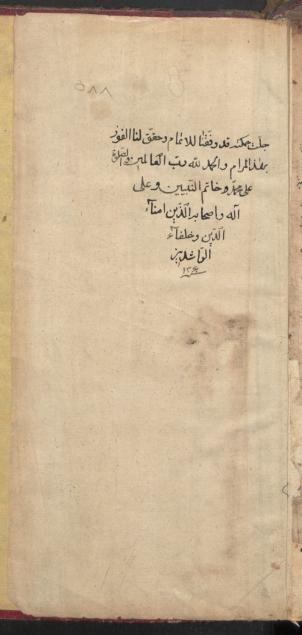 ٥٨٨
جلت حكمته قد وفقنا للاتمام وحقق لنا الفوز
بهذا المرام والحمد لله رب العالمين والصلوة
على محمد وخاتم النبيين وعلى
آله واصحابه الذين امناء
الدين وخلفاء
الراشدين